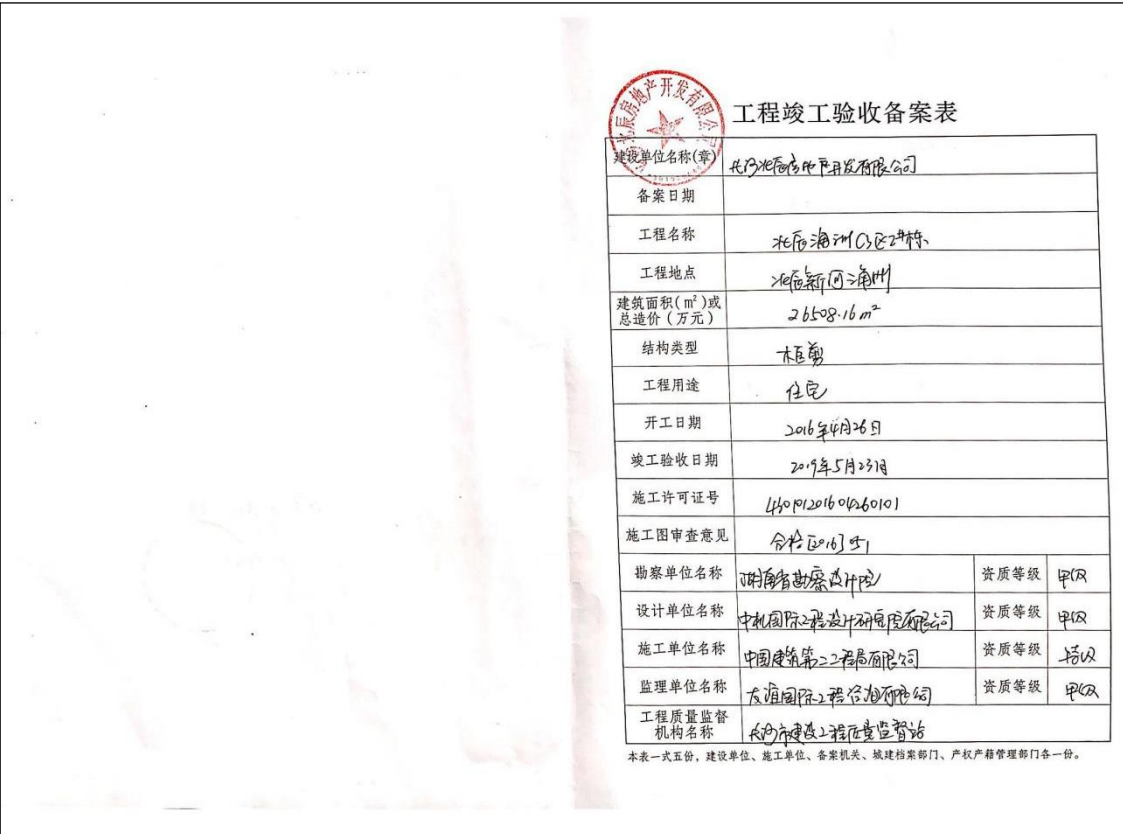 工程竣工验收备案表
建设单位名称(章) 长沙北辰房地产开发有限公司
备案日期
工程名称 北辰三角洲C3区2#栋
工程地点 北辰新河三角洲
建筑面积(m²)或
总造价(万元) 26508.16m²
结构类型 框剪
工程用途 住宅
开工日期 2016年4月26日
竣工验收日期 2019年5月23日
施工许可证号 430101201604260101
施工图审查意见 合格[2016]051
勘察单位名称 湖南省勘察设计院 资质等级 甲级
设计单位名称 中机国际工程设计研究院有限公司 资质等级 甲级
施工单位名称 中国建筑第二工程局有限公司 资质等级 特级
监理单位名称 友谊国际工程咨询有限公司 资质等级 甲级
工程质量监督
机构名称 长沙市建设工程质量监督站
本表一式五份，建设单位、施工单位、备案机关、城建档案部门、产权产籍管理部门各一份。